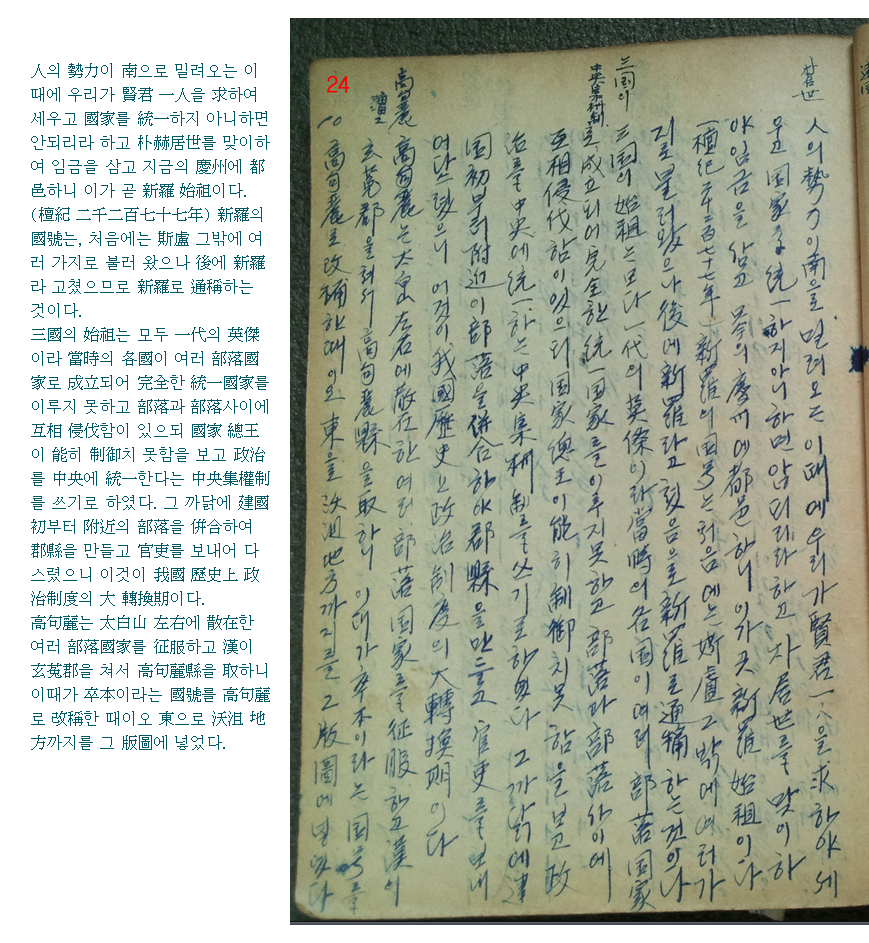 人의 勢力이 南으로 밀려오는 이
때에 우리가 賢君 一人을 求하여
세우고 國家를 統一하지 아니하면
안되리라 하고 朴赫居世를 맞이하
여 임금을 삼고 지금의 慶州에 都
邑하니 이가 곧 新羅 始祖이다.
(檀紀 二千二百七十七年) 新羅의
國號는, 처음에는 斯盧 그밖에 여
러 가지로 불러 왔으나 後에 新羅
라 고쳤으므로 新羅로 通稱하는
것이다.
三國의 始祖는 모두 一代의 英傑
이라 當時의 各國이 여러 部落國
家로 成立되어 完全한 統一國家를
이루지 못하고 部落과 部落사이에
互相 侵伐함이 있으되 國家 總王
이 能히 制御치 못함을 보고 政治
를 中央에 統一한다는 中央集權制
를 쓰기로 하였다. 그 까닭에 建國
初부터 附近의 部落을 併合하여
郡縣을 만들고 官吏를 보내어 다
스렸으니 이것이 我國 歷史上 政
治制度의 大 轉換期이다.
高句麗는 太白山 左右에 散在한
여러 部落國家를 征服하고 漢이
玄菟郡을 쳐서 高句麗縣을 取하니
이때가 卒本이라는 國號를 高句麗
로 改稱한 때이오 東으로 沃沮 地
方까지를 그 版圖에 넣었다.
24
人의 勢力이 南으로 밀려오는 이때에 우리가 賢君 一人을 求하야 세
우고 国家를 統一하지아니하면 안되리라하고 居世를 맞이하
야 임금을 삼고 今의 慶州에 都邑하니 이가 곳 新羅 始祖이다
(檀紀 二千二百七十七年) 新羅의 国号는 처음에는 斯盧 그밖에 여러가
지로 불러왔으나 後에 新羅라고 첬음으로 新羅로 通稱하는 것이다
三国의
三国의 始祖는 모다 一代의 英傑이라 當時의 各国이 여러 部落国家
中央集权制
로 成立되어 完全한 統一国家를 이루지못하고 部落과 部落사이에
互相侵伐함이 있으되 国家總王이 能히 制御치못함을 보고 政
治를 中央에 統一하는 中央集权制를 쓰기로 하였다 그 까닭에 建
国初부터 附近이 部落을 併合하야 郡縣을 만들고 官吏를 보내
여 다스렸으니 이것이 我國歷史上 政治制度의 大轉換期이다
高句麗
高句麗는 太白山 左右에 散在한 여러 部落国家를 征服하고 漢이
玄菟郡을 쳐서 高句麗縣을 取하니 이때가 卒本이라는 国号를
高句麗로 改稱한때이요 東을 沃沮地方까지를 그 版圖에 넣었다